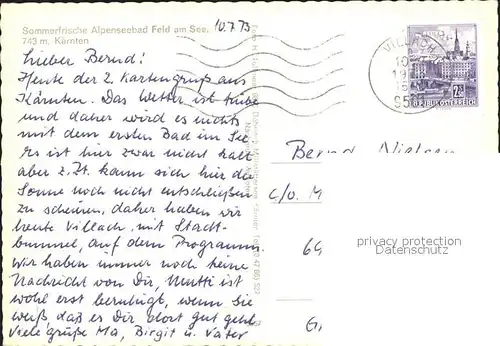 Sommerfrische Alpenseebad Feld am See,
743 m, Kärnten
10.7.73
Lieber Bernd!
Heute der 2. Kartengruß aus
Kärnten. Das Wetter ist trübe
und daher wird es nichts
mit dem ersten Bad im See
Es ist hier zwar nicht kalt
aber z. Zt. kann sich hier die
Sonne noch nicht entschließen
zu scheinen, daher haben wir
heute Villach, mit Stadt-
bummel, auf dem Programm.
Wir haben immer noch keine
Nachricht von Dir, Mutti ist
wohl erst beruhigt, wenn Sie
weiß daß es Dir dort gut geht.
Viele Grüße Ma, Birgit u. Vater
VILLACH
REPUBLIK ÖSTERREICH
Bernd Nielsen
c/o. M
69
privacy protection
Datenschutz
G